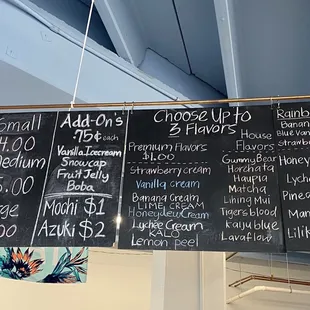 Small
4.00
Medium
5.00
8.00
Add-On's
.75¢ each
Vanilla Icecream
Snowcap
Fruit Jelly
Boba
Mochi $1
Azuki $2
Choose up to
3 Flavors
Premium Flavors
$1.00
Strawberry cream
Vanilla cream
Banana Cream
LIME CREAM
Honeydew Cream
Lychee Cream
KALO
Lemon peel
House
Flavors
Gummy Bear
Horchata
Haupia
Matcha
Lihing Mui
Tigers blood
Lavaflow
Rainbow
Banana
Blue Van
Strawb
Honey
Lych
Pine
Man
Lilik